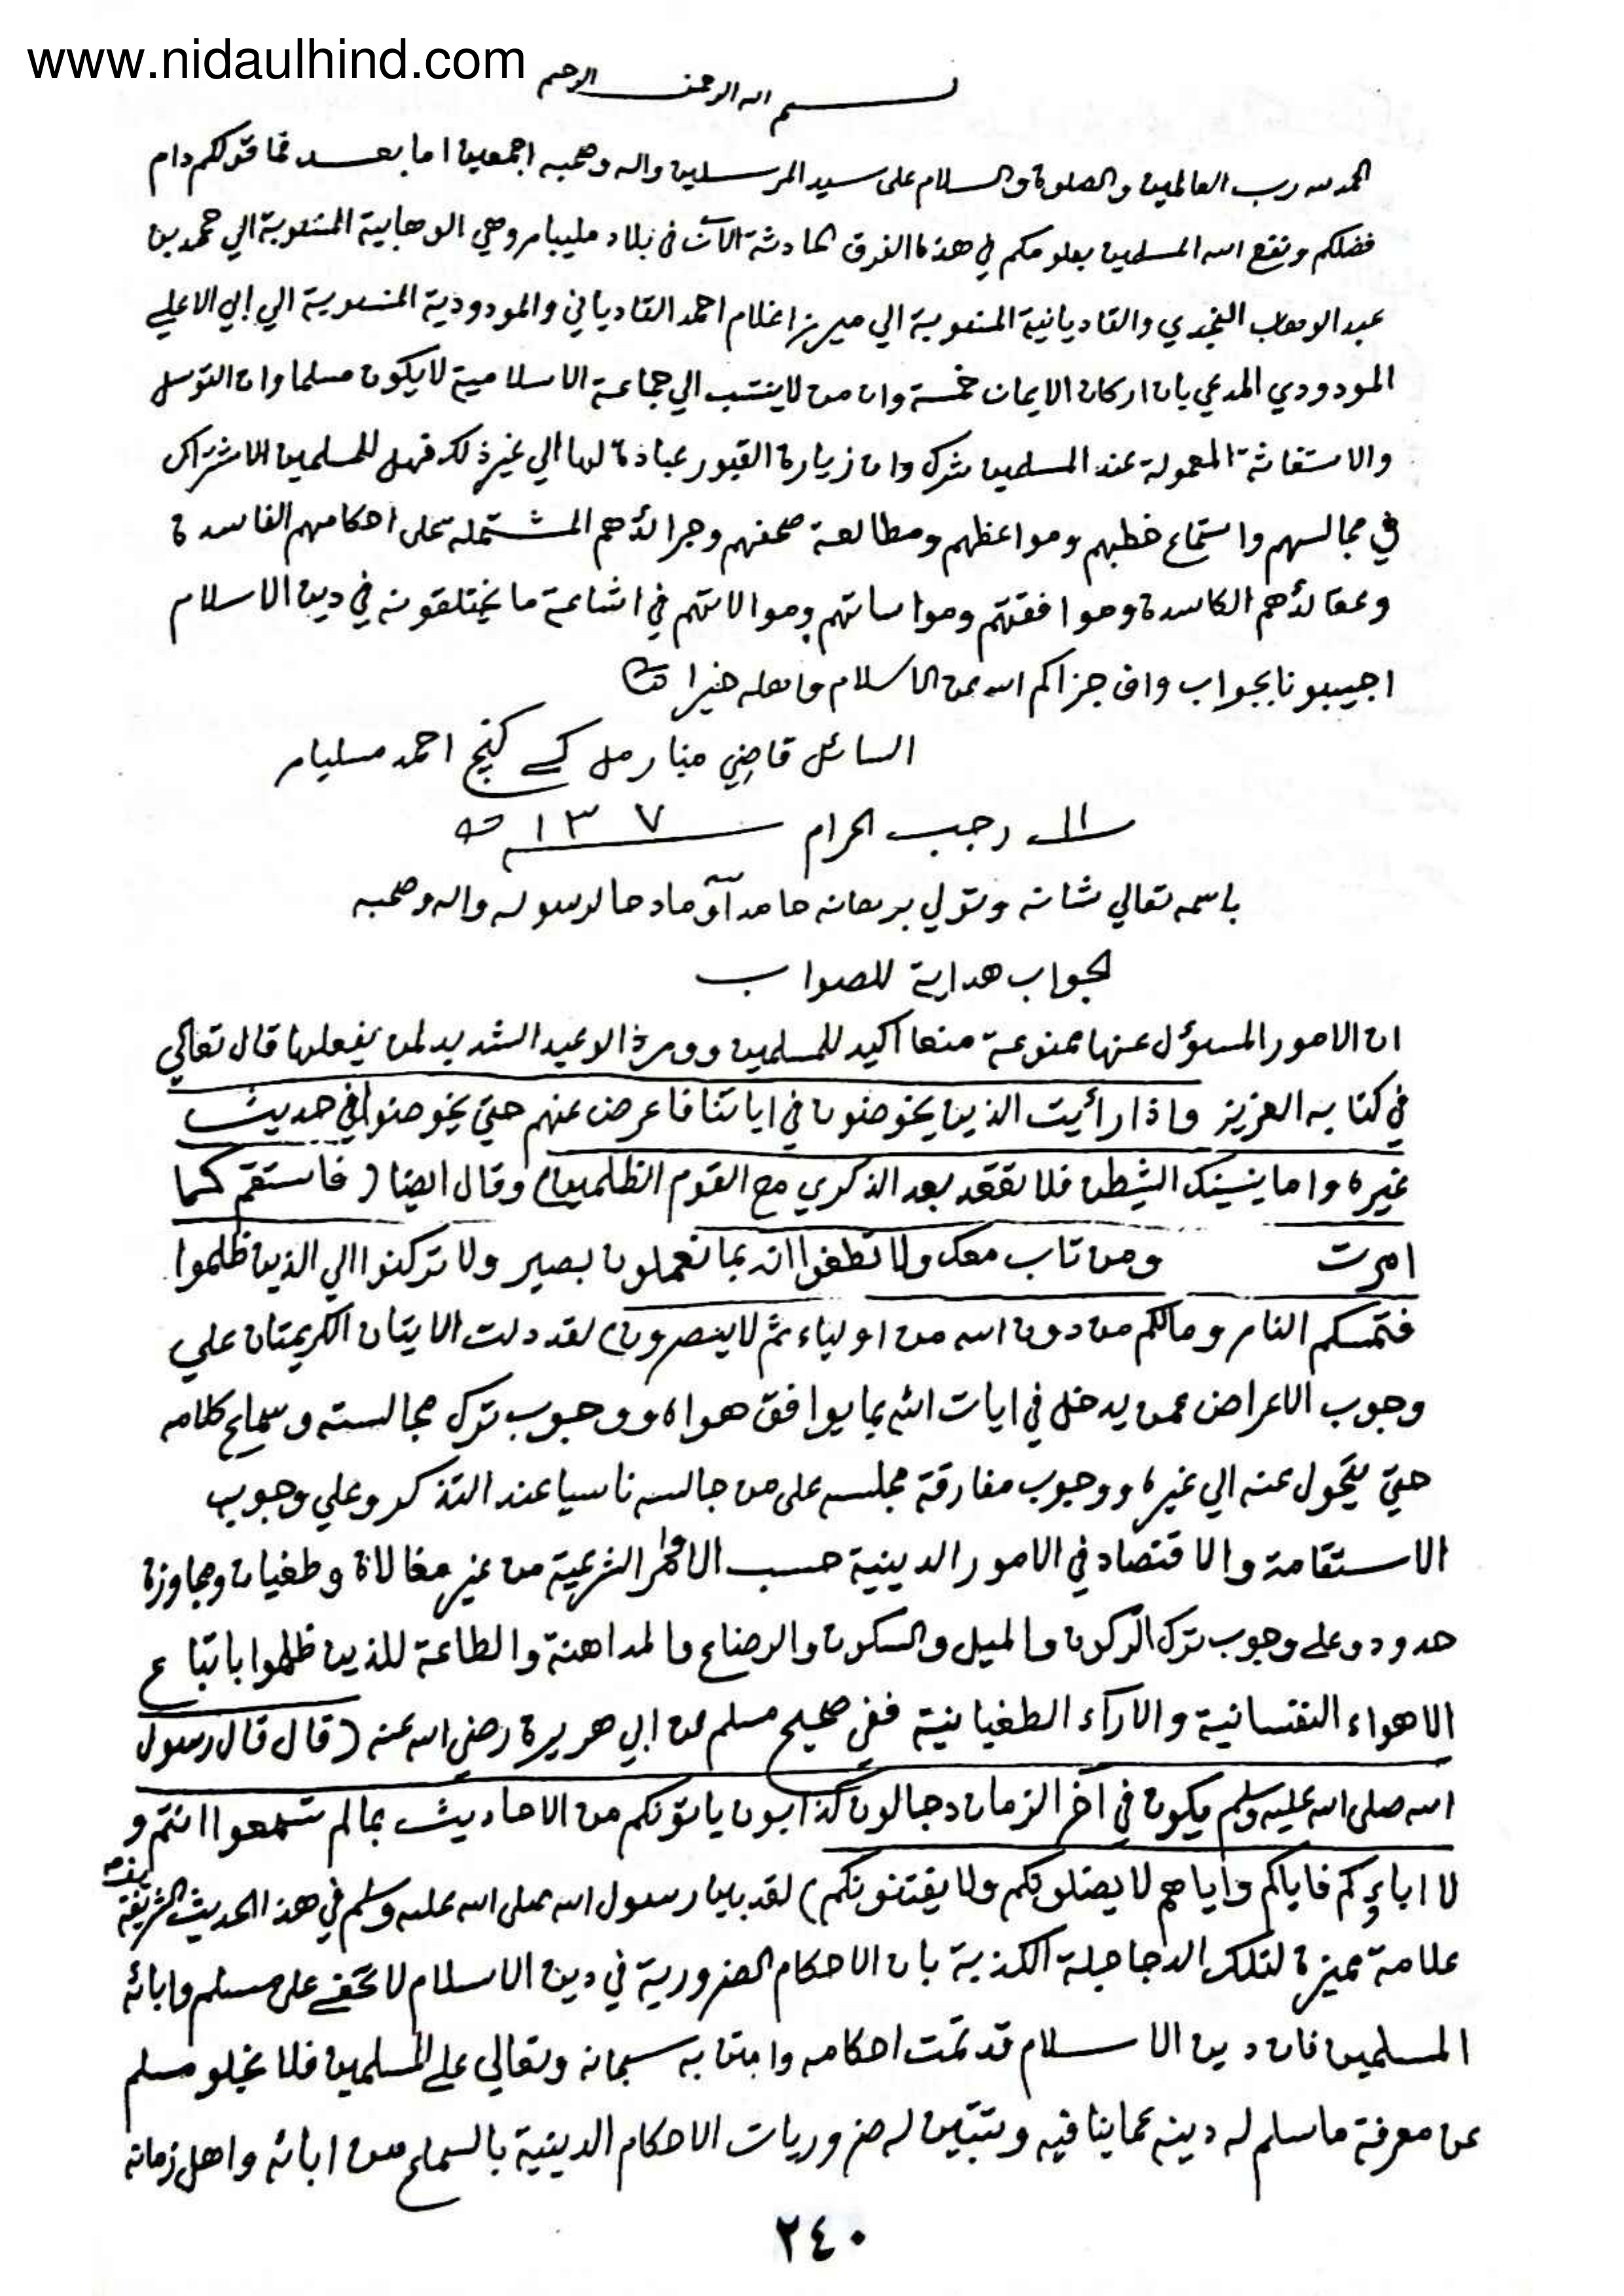 www.nidaulhind.com
بسم الله الرحمن الرحيم
الحمد لله رب العالمين والصلوة والسلام على سيد المرسلين واله وصحبه اجمعين اما بعد فما قولكم دام
فضلكم ونفع الله المسلمين بعلومكم في هذه الفرق الحادثة الآن في بلاد مليبار وهي الوهابية المنسوبة الي محمد بن
عبد الوهاب النجدي والقاديانية المنسوبة الي ميرزا غلام احمد القادياني والمودودية المنسوبة الي ابي الاعلي
المودودي المدعي بان اركان الايمان خمسة وان من لا ينتسب الي جماعة الاسلامية لا يكون مسلما وان التوسل
والاستغاثة المعمولة عند المسلمين شرك وان زيارة القبور عبادة لها الي غير ذلك فهل للمسلمين الاشتراك
في مجالسهم واستماع خطبهم ومواعظهم ومطالعة صحفهم وجرائدهم المشتملة على احكامهم الفاسدة
وعقائدهم الكاسدة وموافقتهم ومواساتهم وموالاتهم في اشاعة ما يختلقونه في دين الاسلام
اجيبونا بجواب واف جزاكم الله عن الاسلام واهله خيرا
السائل قاضي منارمل كے كنج احمد مسليار
١١ رجب الحرام ١٣٧ ه
باسمه تعالي شانه وتولي برهانه حامدا وماد حا لرسوله واله وصحبه
الجواب هداية للصواب
ان الامور المسؤل عنها ممنوعة منعا اكيد للمسلمين وورد الوعيد الشديد لمن يفعلها قال تعالي
في كتابه العزيز واذا رأيت الذين يخوضون في اياتنا فاعرض عنهم حتي يخوضوا في حديث
غيره واما ينسينك الشيطن فلا تقعد بعد الذكري مع القوم الظلمين) وقال ايضا (فاستقم كما
امرت ومن تاب معك ولا تطغوا انه بما تعملون بصير ولا تركنوا الي الذين ظلموا
فتمسكم النار ومالكم من دون الله من اولياء ثم لا ينصرون) لقد دلت الايتان الكريمتان علي
وجوب الاعراض عمن يدخل في ايات الله بما يوافق هواه ووجوب ترك مجالسته وسماع كلامه
حتي يتحول عنه الي غيره ووجوب مفارقة مجلسه على من جالسه ناسيا عند التذكر وعلي وجوب
الاستقامة والاقتصاد في الامور الدينية حسب الاوامر الشرعية من غير مغالاة وطغيان ومجاوزة
حدود وعلى وجوب ترك الركون والميل والسكون والرضاع والمداهنة والطاعة للذين ظلموا باتباع
الاهواء النفسانية والاراء الطغيانية ففي صحيح مسلم عن ابي هريرة رضي الله عنه (قال قال رسول
الله صلى الله عليه وسلم يكون في اخر الزمان دجالون كذابون ياتونكم من الاحاديث بما لم تسمعوا انتم و
لا اباؤكم فاياكم واياهم لا يضلونكم ولا يفتنونكم) لقد بين رسول الله صلى الله عليه وسلم في هذا الحديث الشريفة
علامة مميزة لتلك الدجاجلة الكذبة بان الاحكام الضرورية في دين الاسلام لا تخفى على مسلم وابائه
المسلمين فان دين الاسلام قد تمت احكامه وامتن به سبحانه وتعالي على المسلمين فلا يخلو مسلم
عن معرفة ما سلم له دينه عما ينافيه وتتبين له ضروريات الاحكام الدينية بالسماع من ابائه واهل زمانه
٢٤٠